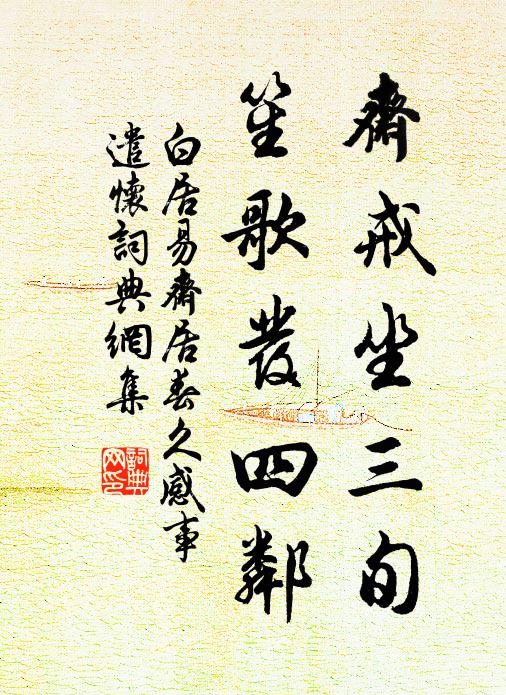 齋戒坐三旬
笙歌發四鄰
白居易齋居春久感事
遣懷詞典網集
詞典
网印